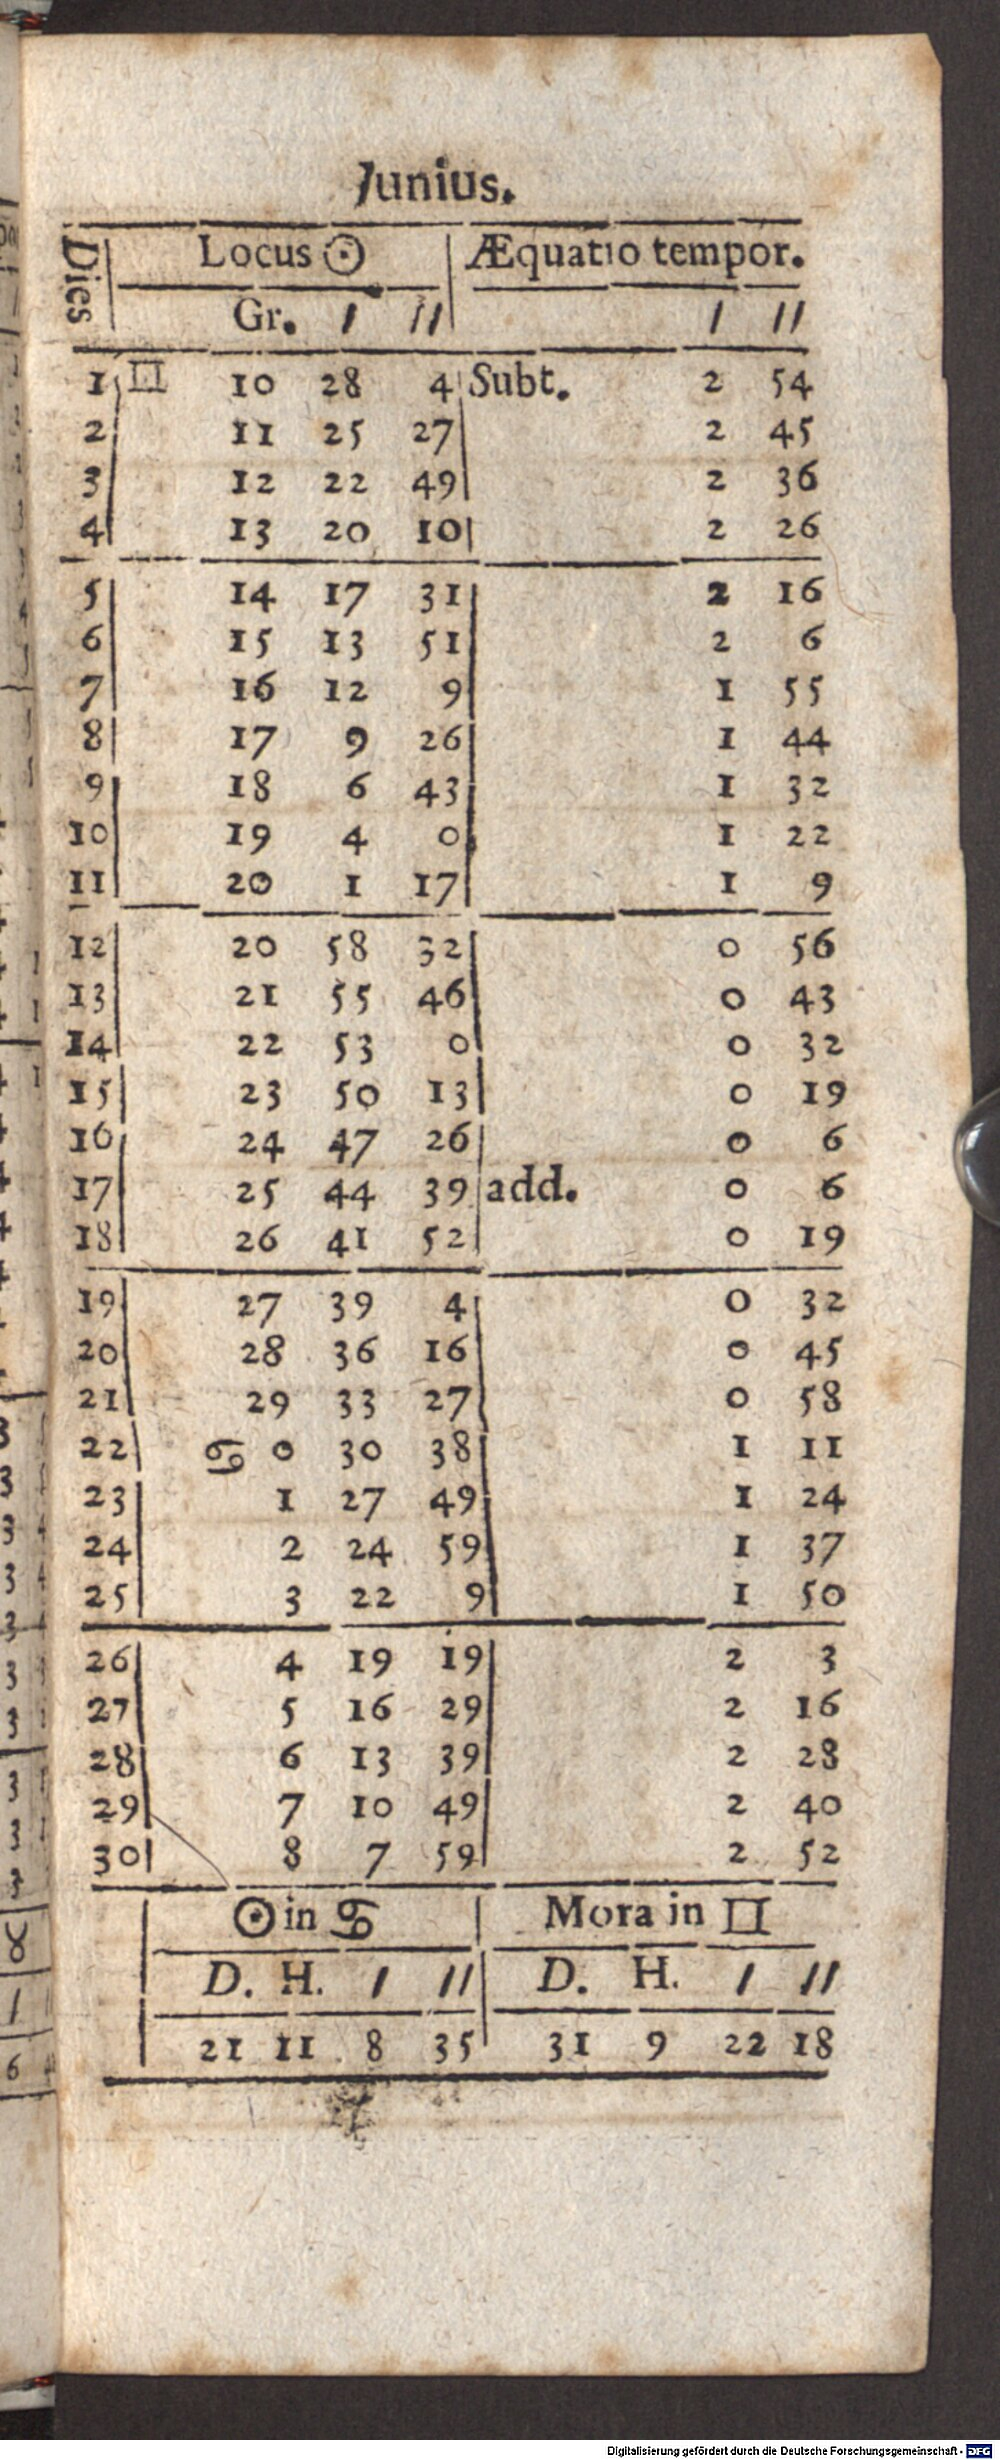 Junius.
Dies Locus ☉ Æquatio tempor.
Gr. ʹ ʹʹ ʹ ʹʹ
1 ♊ 10 28 4 Subt. 2 54
2 11 25 27 2 45
3 12 22 49 2 36
4 13 20 10 2 26
5 14 17 31 2 16
6 15 13 51 2 6
7 16 12 9 1 55
8 17 9 26 1 44
9 18 6 43 1 32
10 19 4 0 1 22
11 20 1 17 1 9
12 20 58 32 0 56
13 21 55 46 0 43
14 22 53 0 0 32
15 23 50 13 0 19
16 24 47 26 0 6
17 25 44 39 add. 0 6
18 26 41 52 0 19
19 27 39 4 0 32
20 28 36 16 0 45
21 29 33 27 0 58
22 ♋ 0 30 38 1 11
23 1 27 49 1 24
24 2 24 59 1 37
25 3 22 9 1 50
26 4 19 19 2 3
27 5 16 29 2 16
28 6 13 39 2 28
29 7 10 49 2 40
30 8 7 59 2 52
☉ in ♋ Mora in ♊
D. H. ʹ ʹʹ D. H. ʹ ʹʹ
21 11 8 35 31 9 22 18
Digitalisierung gefördert durch die Deutsche Forschungsgemeinschaft - DFG